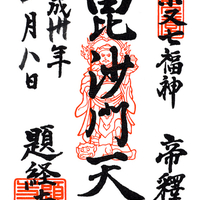 又七福神
帝釋
毘沙門天
成卅年
月八日
題経寺